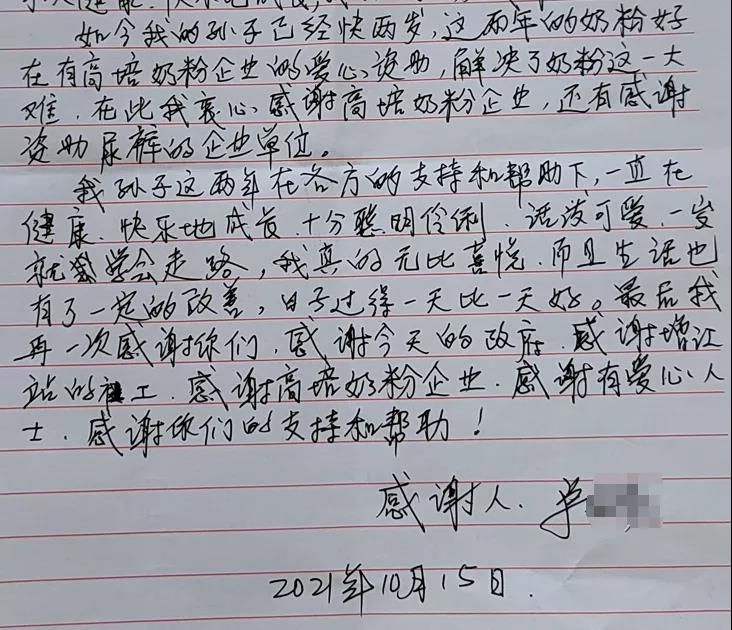 如今我的孙子已经快两岁,这两年的奶粉好
在有高培奶粉企业的爱心资助,解决了奶粉这一大
难,在此我衷心感谢高培奶粉企业,还有感谢
资助尿裤的企业单位。
我孙子这两年在各方的支持和帮助下,一直在
健康、快乐地成长,十分聪明伶俐、活泼可爱,一岁
就学会走路,我真的无比喜悦,而且生活也
有了一定的改善,日子过得一天比一天好。最后我
再一次感谢你们,感谢今天的政府,感谢增江
站的社工,感谢高培奶粉企业,感谢有爱心人
士,感谢你们的支持和帮助!
感谢人:单
2021年10月15日.